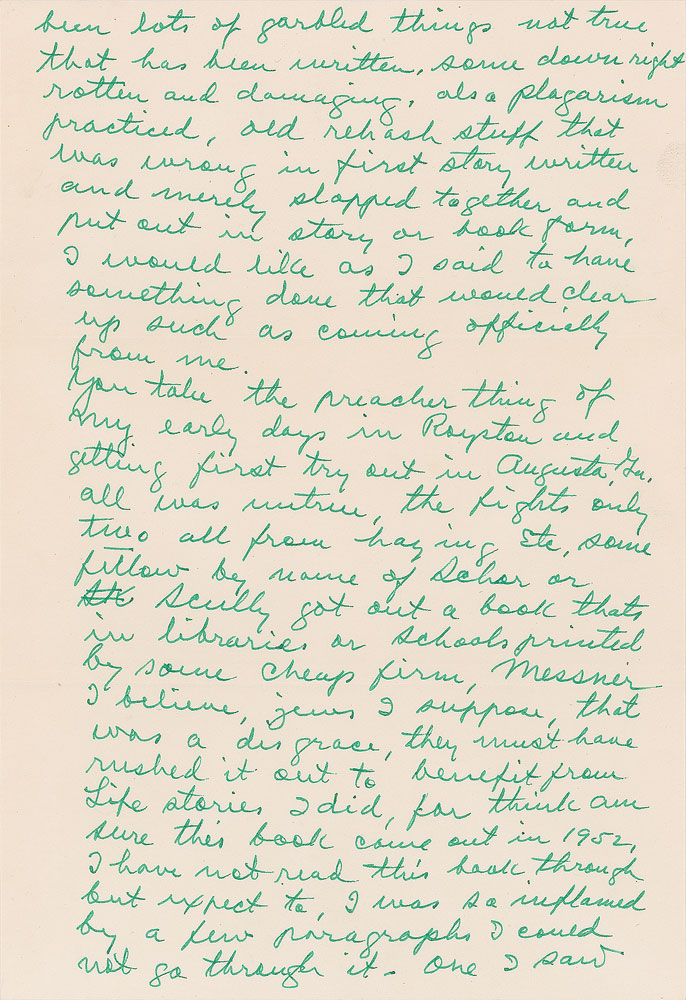 been lots of garbled things not true
that has been written, some down right
rotten and damaging, also plagarism
practiced, old rehash stuff that
was wrong in first story written
and merely slapped together and
put out in story or book form,
I would like as I said to have
something done that would clear
up such as coming officially
from me.
You take the preacher thing of
my early days in Royston and
getting first try out in Augusta, Ga.
all was untrue, the fights only
two all from hazing Etc, some
fellow by name of Schor or
Scully got out a book thats
in libraries or schools printed
by some cheap firm, Messner
I believe, jews I suppose, that
was a disgrace, they must have
rushed it out to benefit from
Life stories I did, for think am
sure this book come out in 1952,
I have not read this book through
but expect to, I was so inflamed
by a few paragraphs I could
not go through it - one I saw